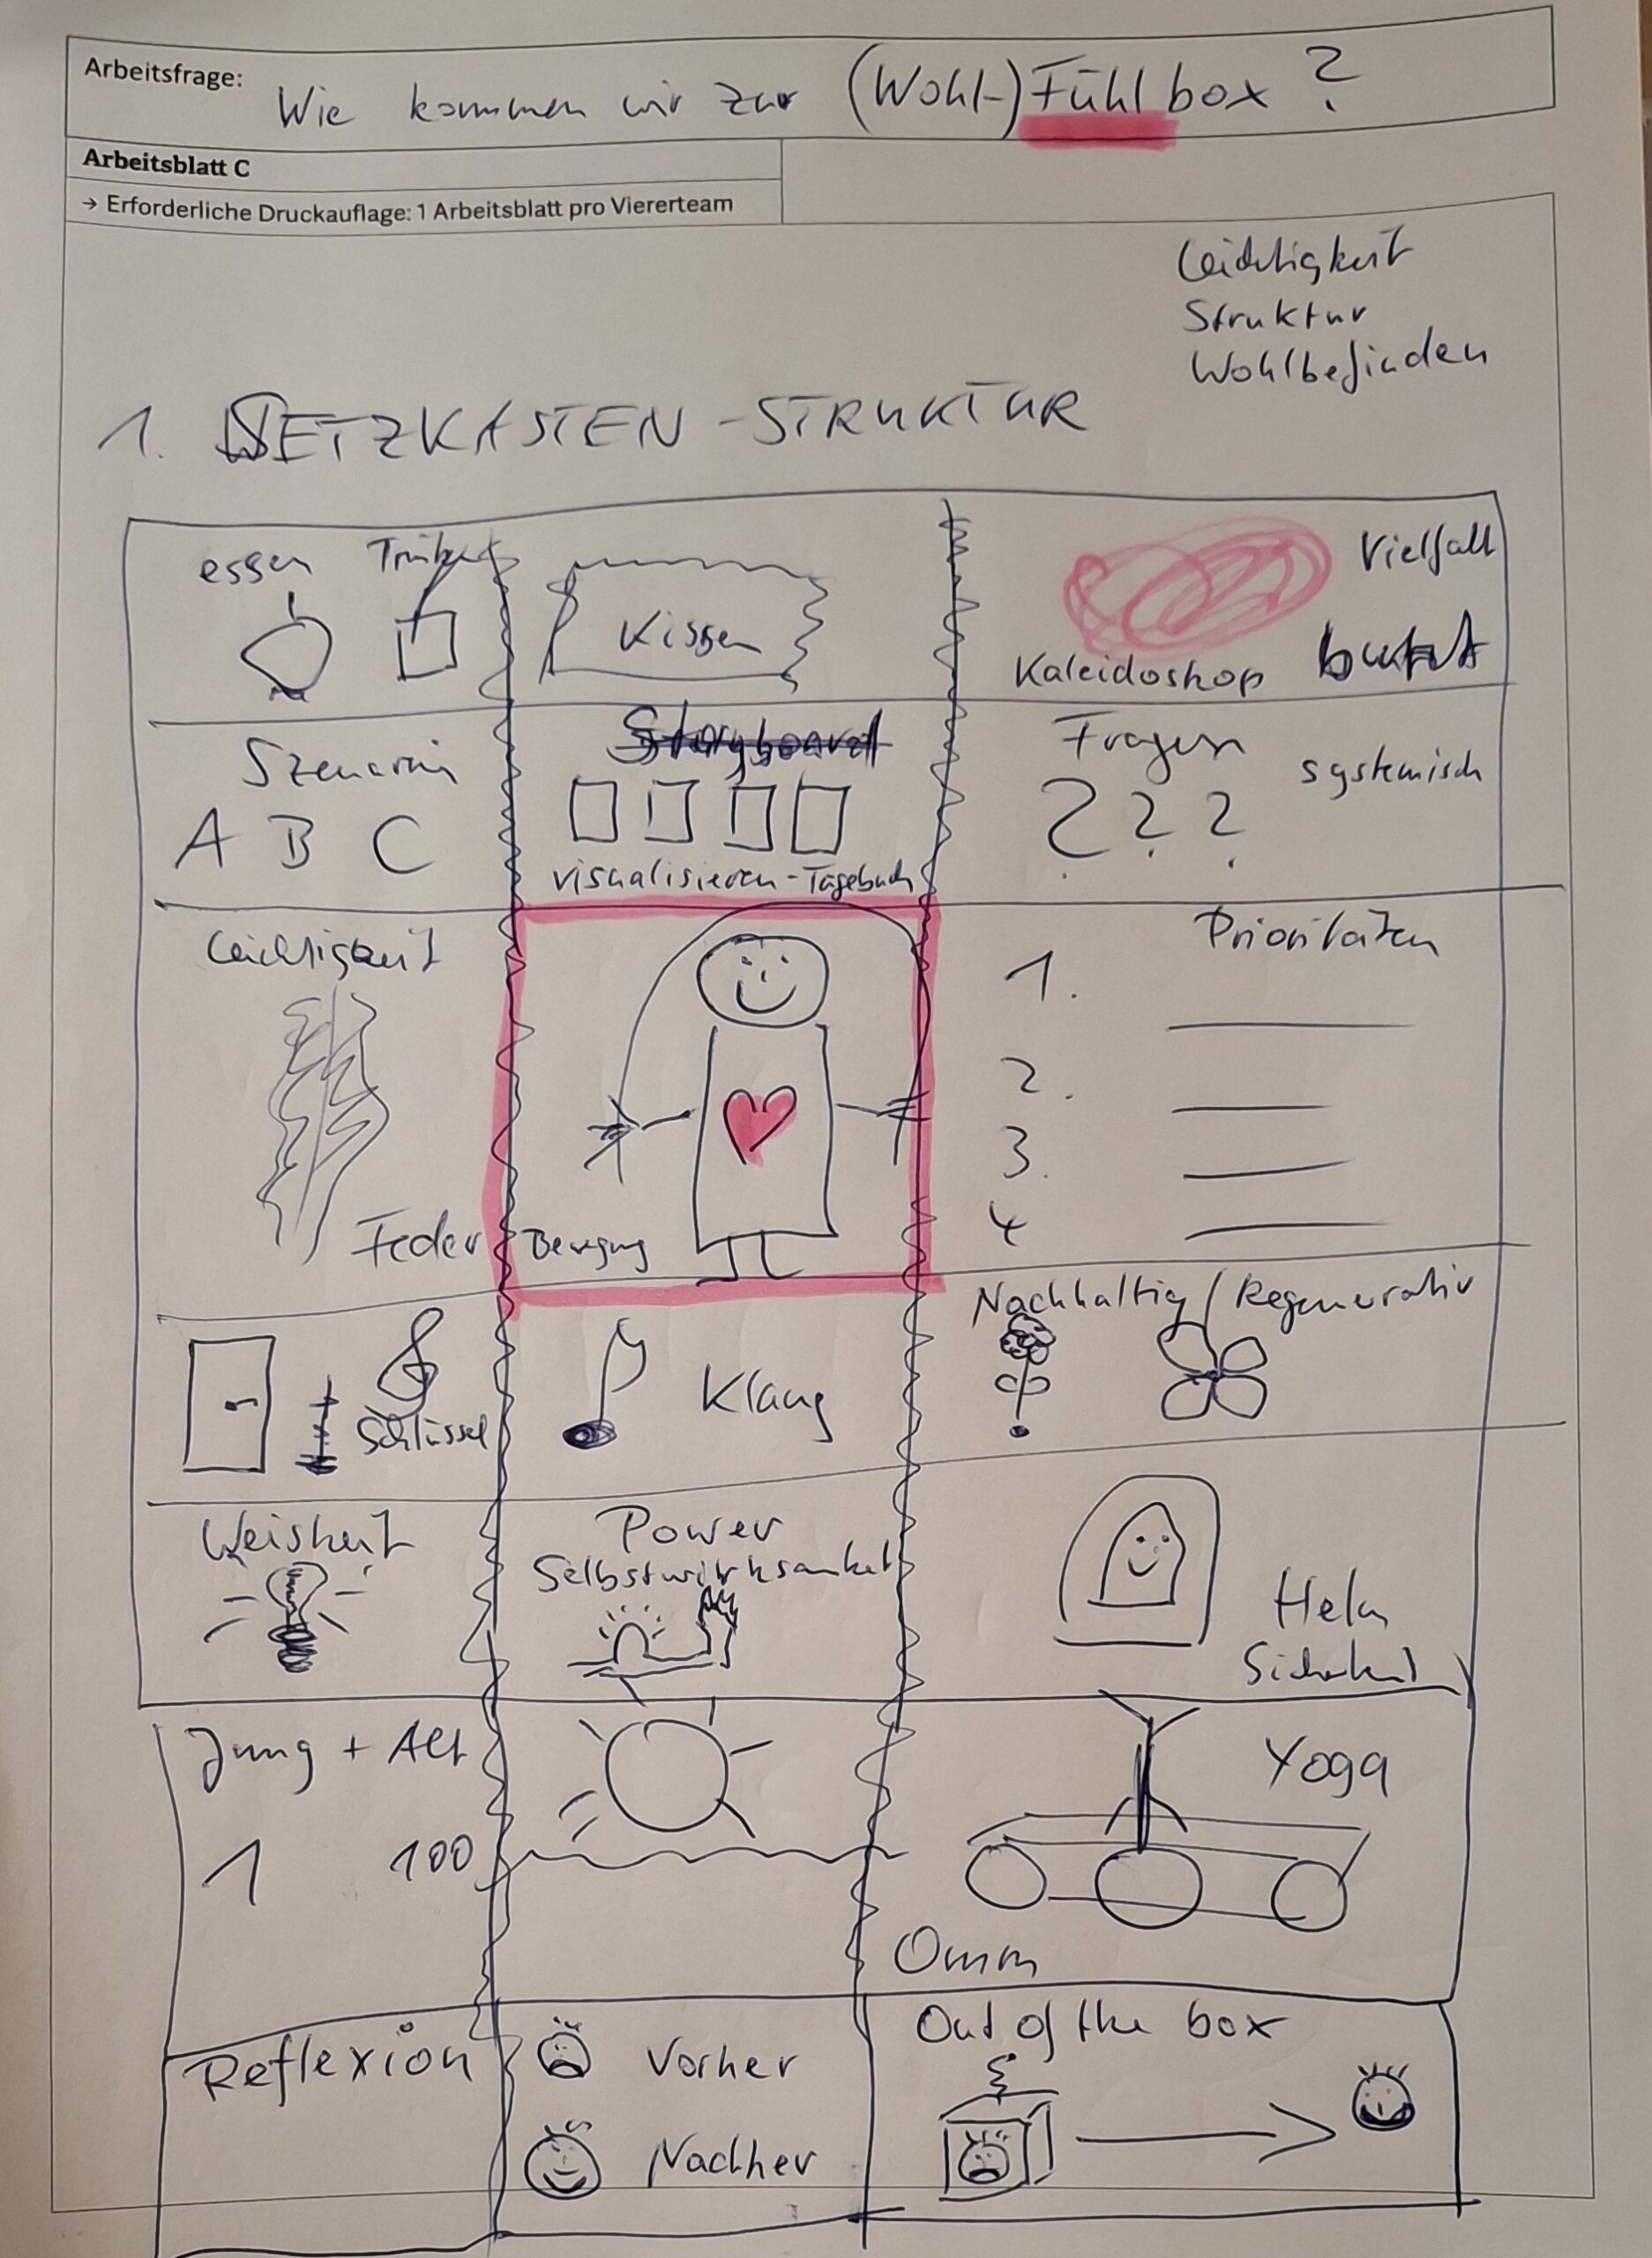 Arbeitsfrage: Wie kommen wir zur (Wohl-)Fühlbox?
Arbeitsblatt C
→ Erforderliche Druckauflage: 1 Arbeitsblatt pro Viererteam
Leichtigkeit
Struktur
Wohlbefinden
1. SETZKASTEN-STRUKTUR
essen Trinken
Kissen
Vielfalt
Kaleidoskop
bunt
Szenarien
A B C
Storyboard
visualisieren-Tagebuch
Fragen
systemisch
? ? ?
Leichtigkeit
Feder
Bewegung
Prioritäten
1.
2.
3.
4
Schlüssel
Klang
Nachhaltig/Regenerativ
Weisheit
Power
Selbstwirksamkeit
Helm
Sicherheit
Jung + Alt
1 100
Yoga
Omm
Reflexion
Vorher
Nachher
Out of the box